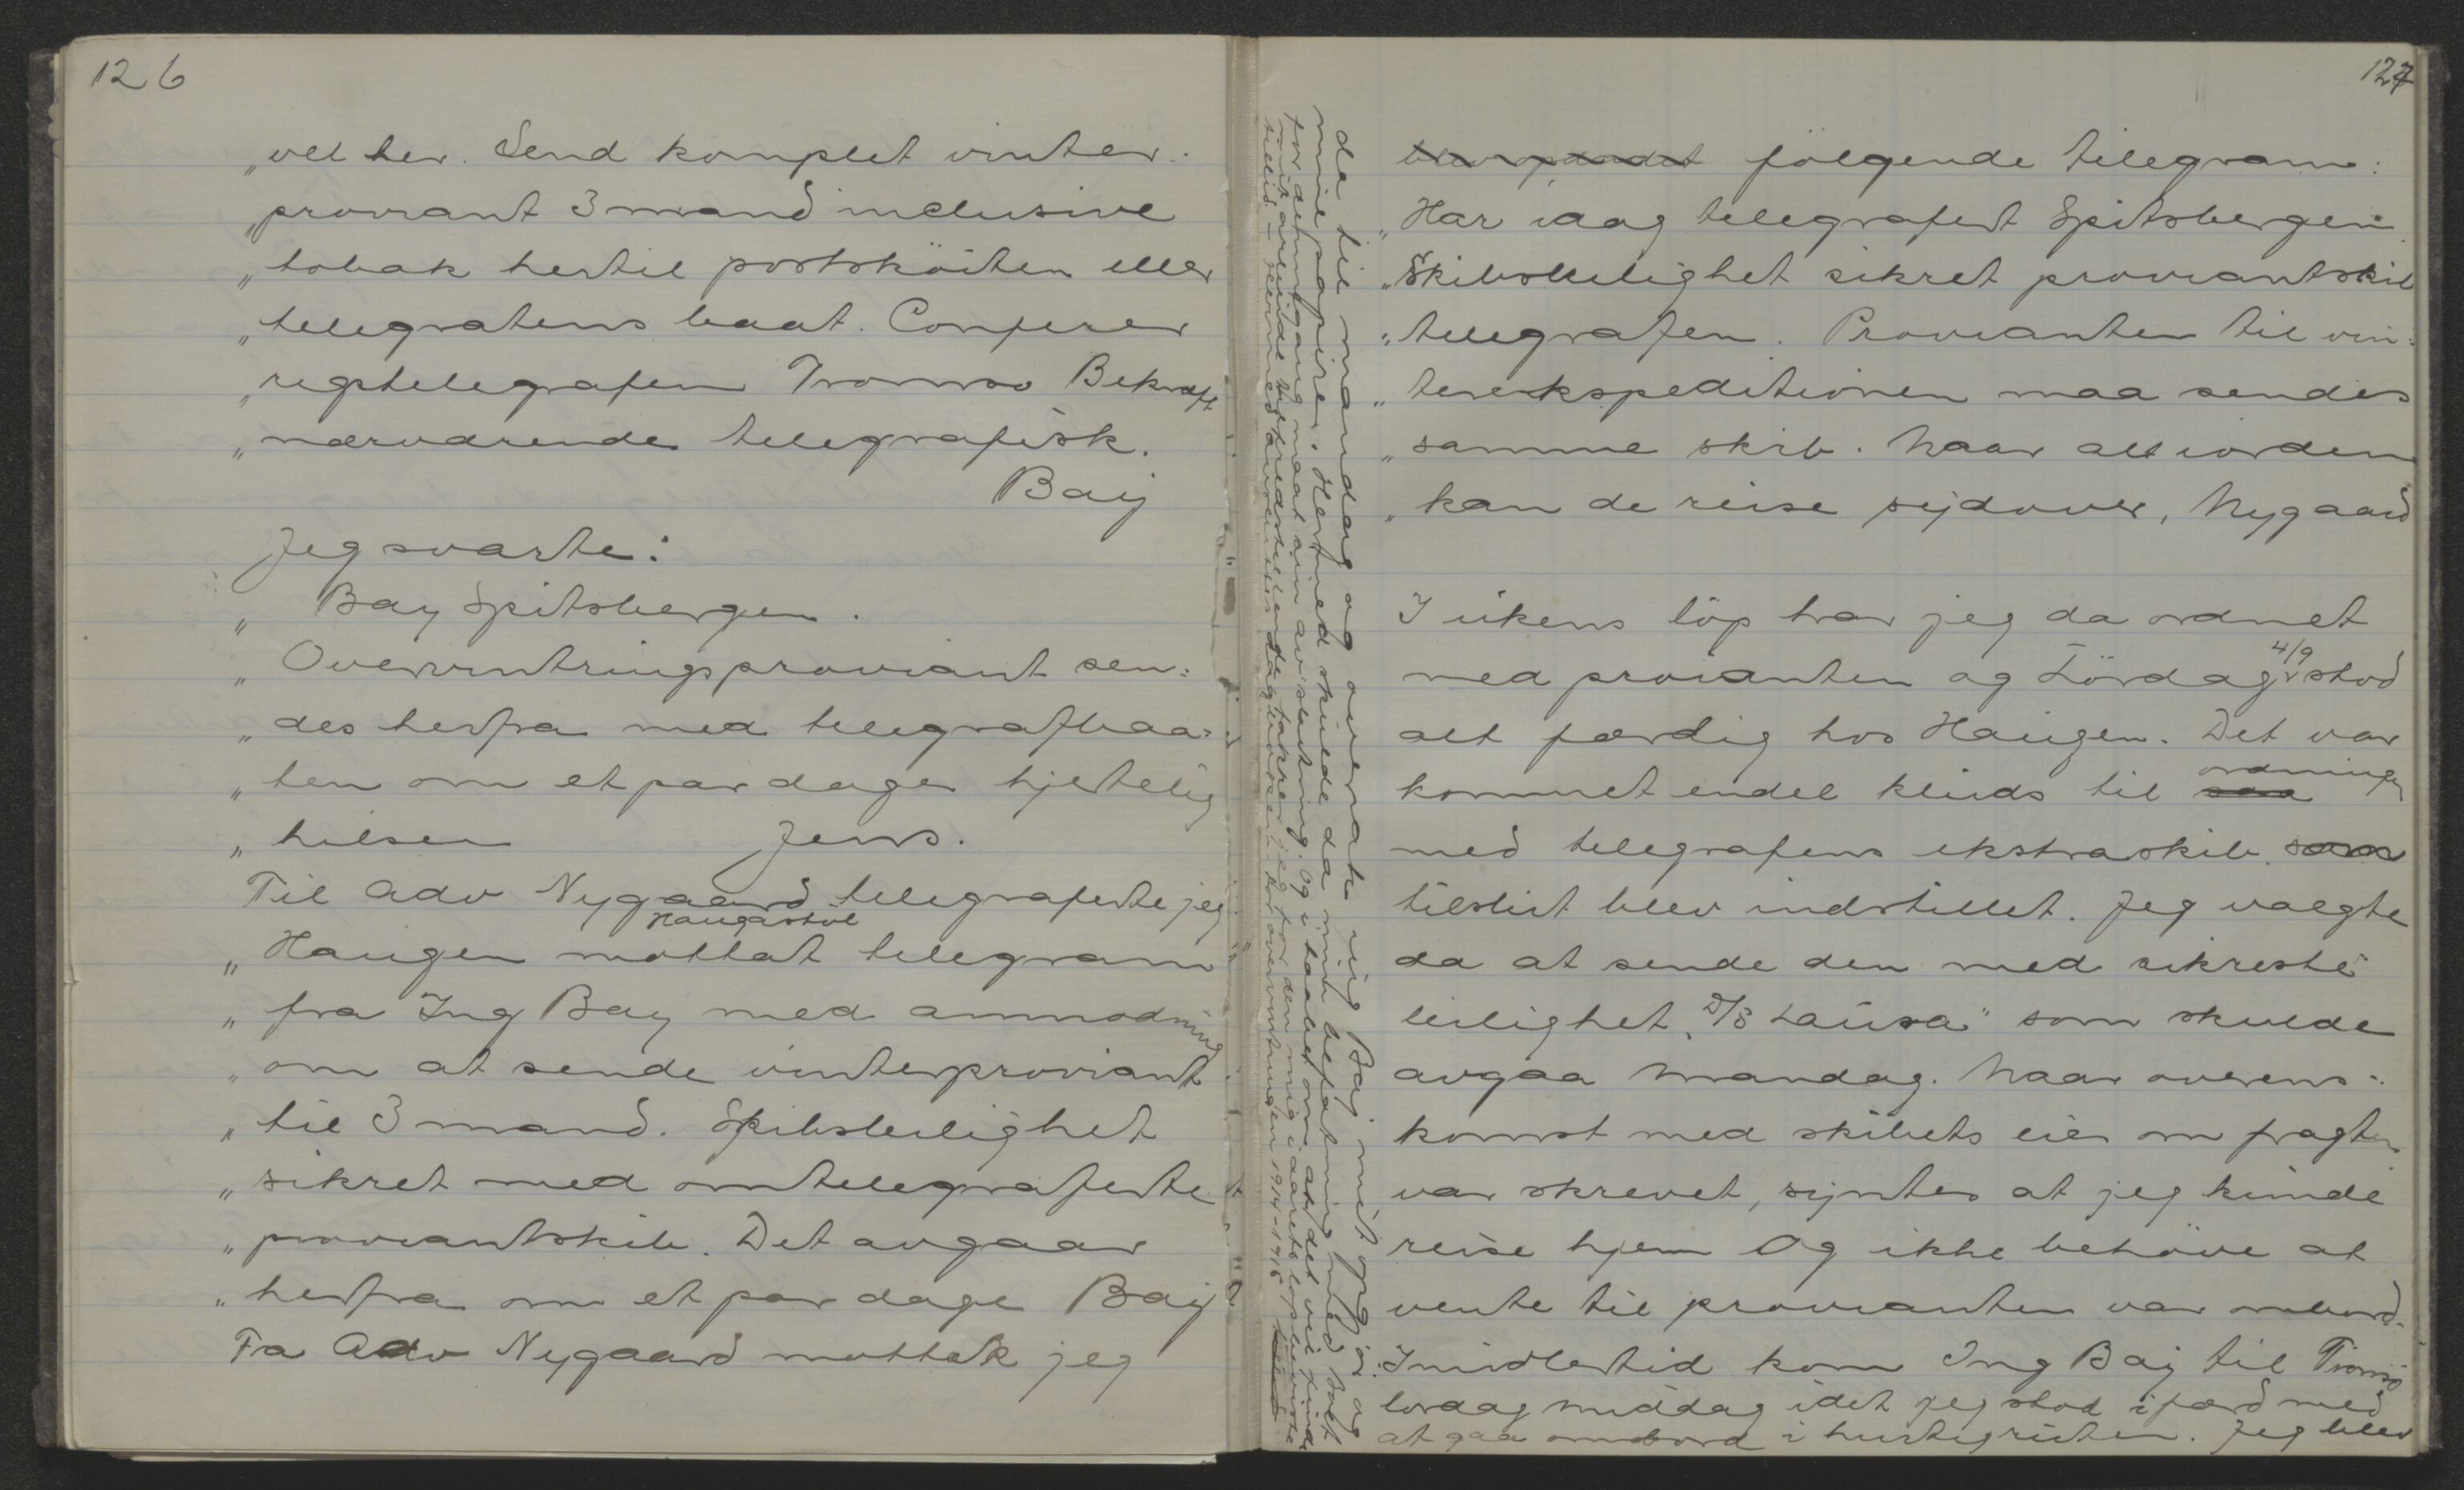 126
„vel her. Send komplet vinter-
„proviant 3 mand inclusive
„tobak hertil postskøiten eller
„telegrafens baat. Conferer
„rigstelegrafen Tromsø Bekræft
„nærværende telegrafisk.
Bay
Jeg svarte:
„ Bay Spitsbergen.
„ Overvintringsproviant sen=
„des herfra med telegrafbaa=
„ten om et par dager hjertelig
„hilsen Jens.
Til Adv Nygaard telegraferte jeg
Haugastøl
„Haugen mottat telegram
„fra Ing Bay med anmodning
„om at sende vinterproviant
„til 3 mand. Skibsleilighet
„sikret med omtelegraferte
„proviantskib. Det avgaar
„herfra om et par dage Bay
Fra Adv Nygaard mottok jeg
127
følgende telegram:
„Har idag telegrafert Spitsbergen
„Skibsleilighet sikret proviantskib
„telegrafen. Provianten til vin=
„terekspeditionen maa sendes
„samme skib. Naar alt iorden
„kan de reise sydover, Nygaard
I ukens løp har jeg da ordnet
med provianten og Lørdag 4/9 stod
alt færdig hos Haugen. Det var
ordningen
kommet endel kluds til saa
med telegrafens ekstraskib. som
tilslut blev indstillet. Jeg valgte
da at sende den med sikreste
leilighet, D/S „Laura" som skulde
avgaa mandag. Naar overens=
komst med skibets eier om fragten
var skrevet, syntes at jeg kunde
reise hjem Og ikke behøve at
vente til provianten var ombord.
Imidlertid kom Ing Bay til Tromsø
lørdag middag idet jeg stod i færd med
at gaa ombord i hurtigruten. Jeg blev
da til mandag og overrakte ing Bay mit opgjør og
mine papirer. Hermed skulde da min befatning med
for dennegang naat sin avslutning. Og i haabet om at det vil finde
mit arbeide tilfredsstillende takker jeg for den mig i aarets løp beviste
tillid – overvintringen 1914-1915